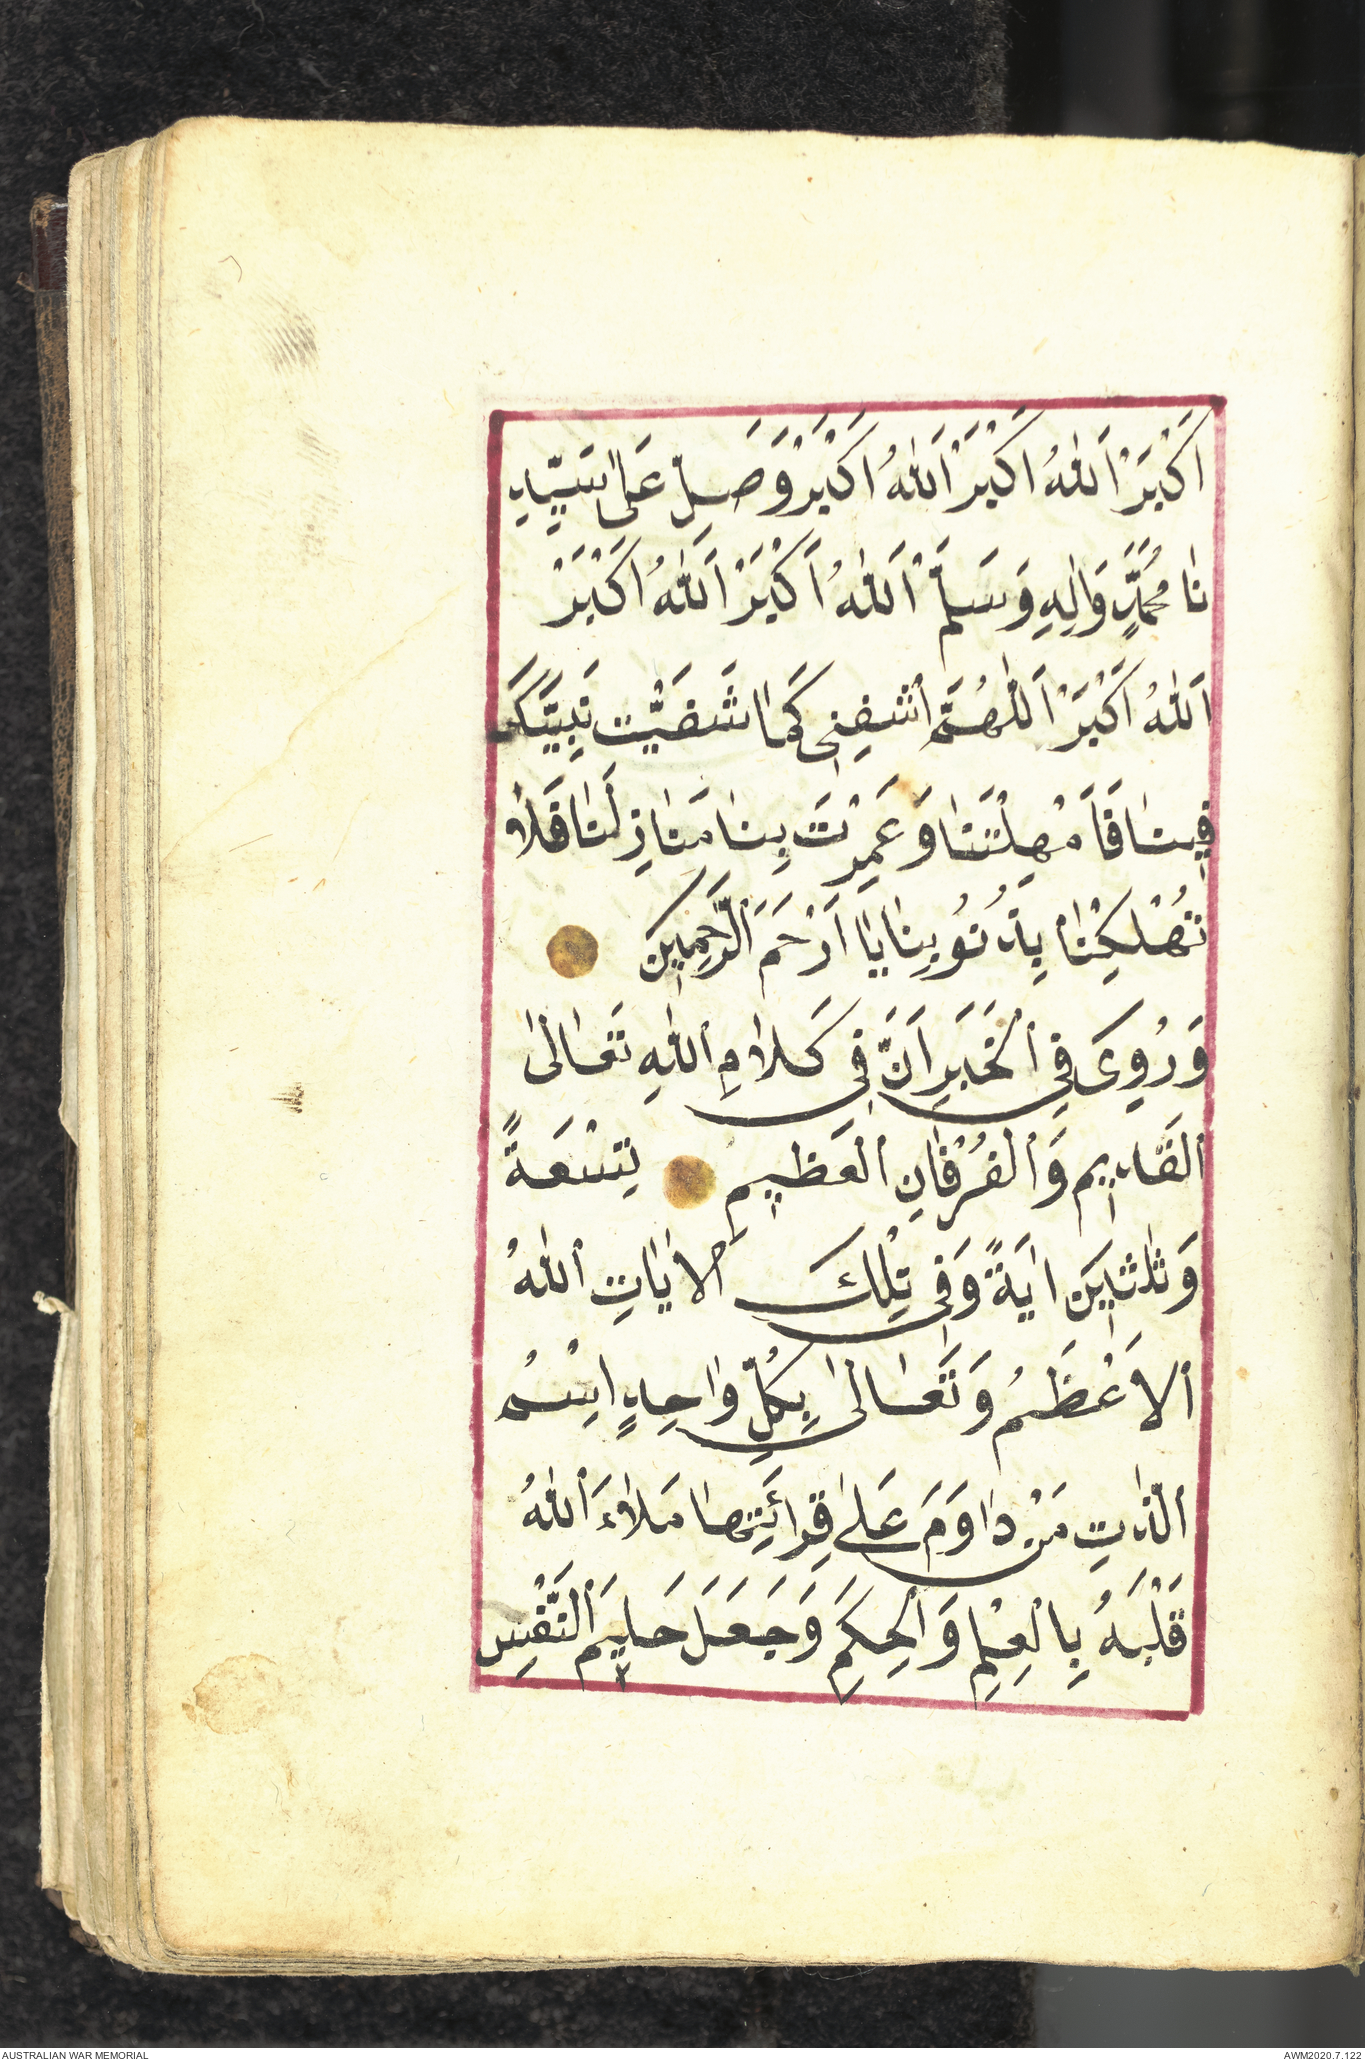 اَكْبَرْ اَللهُ اَكْبَرْ اَللهُ اَكْبَرْ وَصَلِّ عَلىٰ سَيِّدِ
نٰا مُحَمَّدٍ وَاٰلِهِ وَسَلَّمْ اَللهُ اَكْبَرْ اَللهُ اَكْبَرْ
اَللهُ اَكْبَرْ اَللّٰهُمَّ اشْفِنِى كَمٰا شَفَيْتَ نَبِيَّكَ
فِينٰا فَاَمْهِلْتَنٰا وَعَمِرْتَ بِنٰا مَنٰازِلَنٰا فَلاٰ
تُهْلِكْنٰا بِذُنُوبِنٰا يٰا اَرْحَمَ الرّٰحِمِينَ
وَرُوِىَ فِي الْخَبَرِ اَنَّ فِى كَلاٰمِ اللهِ تَعٰالىٰ
الْقَدِيمِ وَالْفُرْقٰانِ الْعَظِيمِ تِسْعَةً
وَثَلٰثِينَ اٰيَةً وَفِى تِلْكَ الاٰيٰاتِ اللهُ
الاَعْظَمُ وَتَعٰالىٰ بِكُلِّ وٰاحِدٍ اِسْمُ
الذّٰتِ مَنْ دٰاوَمَ عَلىٰ قِرٰائَتِهٰا مَلاَءَ اللهُ
قَلْبَهُ بِالْعِلْمِ وَالْحِكَمِ وَجَعَلَ حَلِيمَ النَّفْسِ
AUSTRALIAN WAR MEMORIAL
AWM2020.7.122